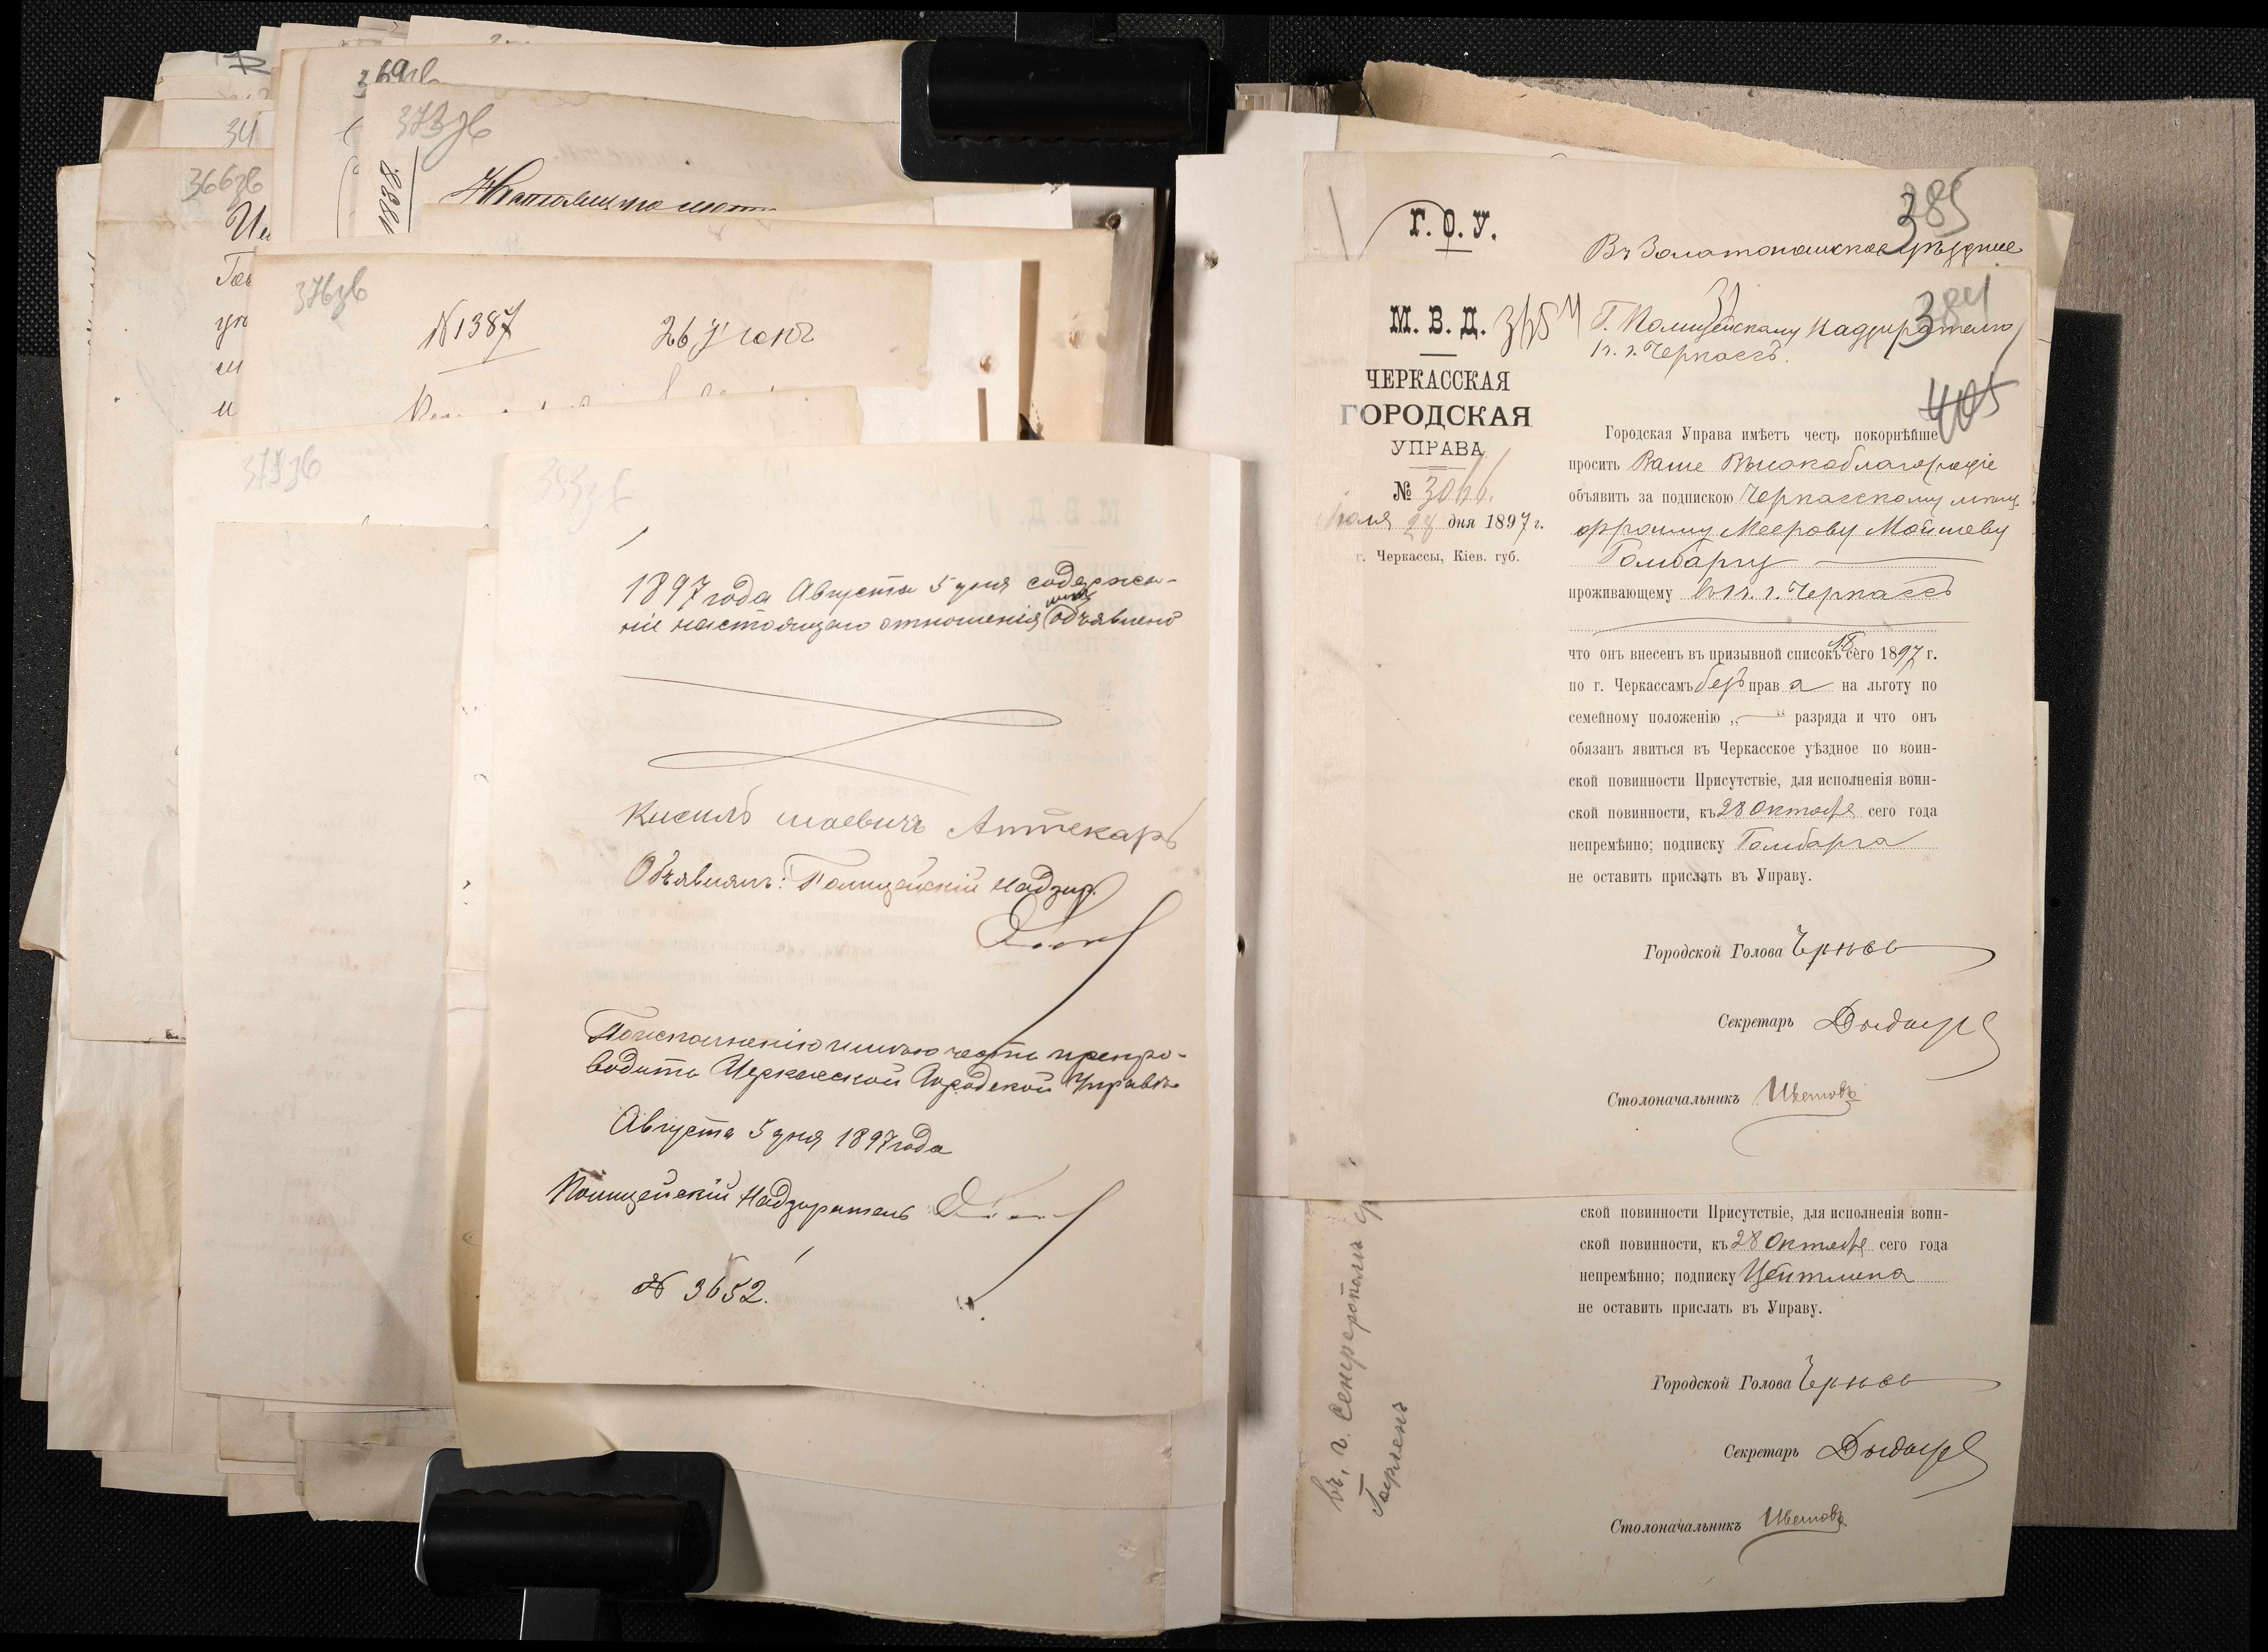 369зв
373зв
1838.
34
366зв
376зв
N1387
26 Июля
379зв
383зв
1897 года Августа 5 дня содержа-
ніе настоящаго отношенія мнѣ объявлено
Аптекарь
Объявилъ: Полицейскій Надзир.
По исполненію имѣю честь препро-
водить Черкасской Городской Управѣ
Августа 5 дня 1897 года
Полицейскій Надзиратель
N 3652.
385
Г. О. У.
Въ Золотоношское уѣздное
384
М. В. Д.
Г. Полицейскому Надзирателю
г. Черкассъ.
ЧЕРКАССКАЯ
ГОРОДСКАЯ
УПРАВА
405
№ 3066.
Іюля 28 дня 1897 г.
г. Черкассы, Кіев. губ.
Городская Управа имѣетъ честь покорнѣйше
просить Ваше Высокоблагородіе
объявить за подпискою Черкасскому мѣщ.
Меерову Мойшеву
Голибаргу
проживающему въ г. Черкассъ
что онъ внесенъ въ призывной списокъ сего 1897 г.
по г. Черкассамъ безъ права на льготу по
семейному положенію „—“ разряда и что онъ
обязанъ явиться въ Черкасское уѣздное по воин-
ской повинности Присутствіе, для исполненія воин-
ской повинности, къ 28 Октября сего года
непремѣнно; подписку Голибарга
не оставить прислать въ Управу.
Городской Голова
Секретарь
Столоначальникъ
ской повинности Присутствіе, для исполненія воин-
ской повинности, къ 28 Октября сего года
непремѣнно; подписку Цейтлина
не оставить прислать въ Управу.
Городской Голова
Секретарь
Столоначальникъ
въ г. Симферополь